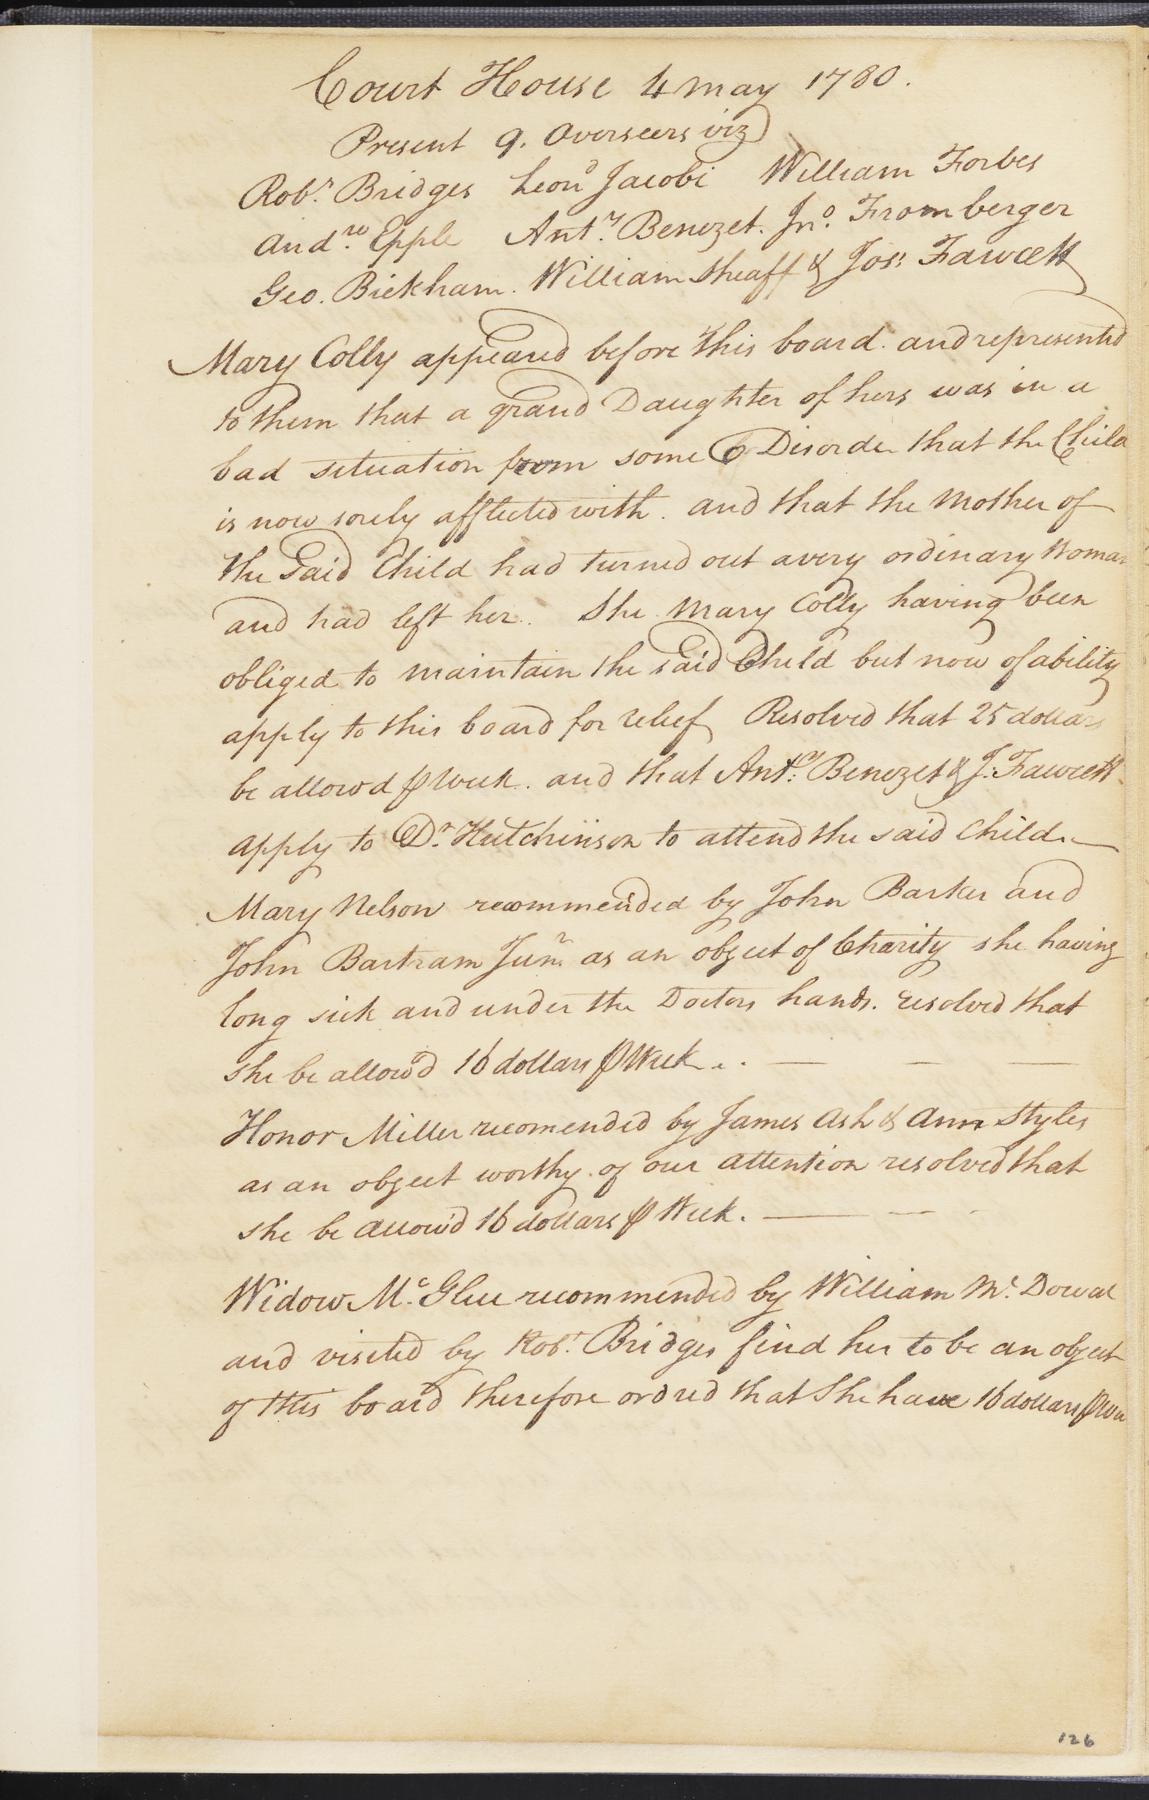 Court House 4 may 1780.
Present 9. Overseers viz
Robt. Bridges Leond Jacobi William Forbes
Andrw. Epple Anty. Benezet. Jno. Fromberger
Geo. Bickham. William Sheaff & Jos: Fawcett
Mary Colly appeared before this board. and represented
to them that a grand Daughter of hers was in a
bad situation from some Disorder that the Child
is now sorely afflected with. and that the Mother of
the said Child had turned out a very ordinary Woman
and had left her. She Mary Colly having been
obliged to maintain the said Child but now of ability
apply to this board for relief Resolved that 25 dollars
be allow'd ⅌ Week. and that Anty. Benezet & J. Fawcett
apply to Dr. Hutchinson to attend the said Child.
Mary Nelson recommended by John Barker and
John Bartram Junr. as an object of Charity she having
long sick and under the Doctors hands. resolved that
she be allow'd 16 dollars ⅌ Week. .
Honor Miller recomended by James Ash & Ann Styles
as an object worthy of our attention resolved that
she be allow'd 16 dollars ⅌ Week.
Widow Mc. Glue recommended by William Mc. Dowal
and visited by Robt. Bridges find her to be an object
of this board therefore ordred that She have 16 dollars ⅌ Wee
126